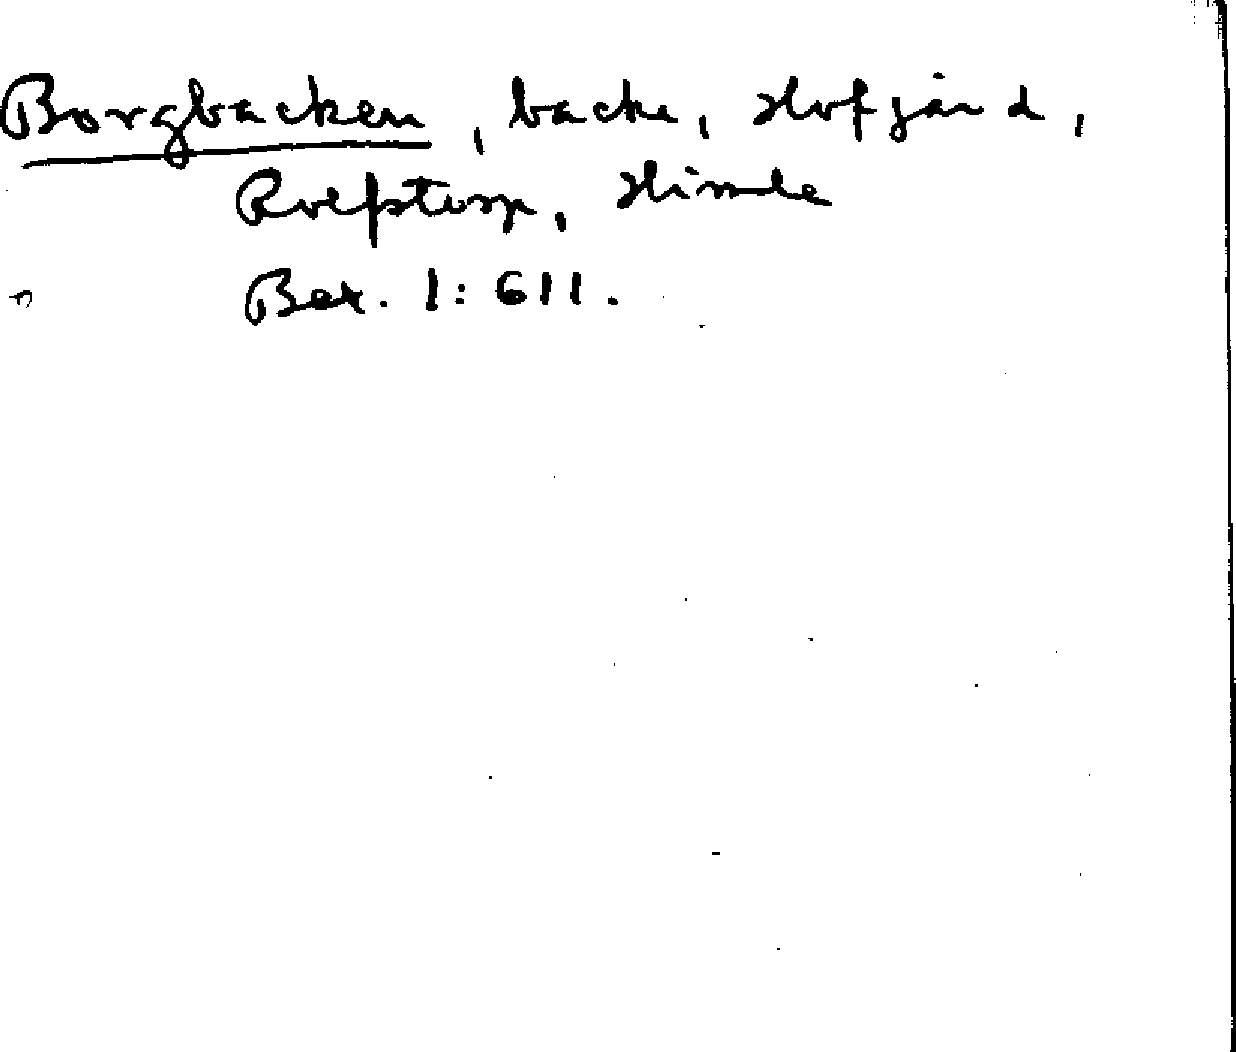 Borgbacken, backe, Hofgård,
Rolfstorp, Himle
Bex. 1:611.